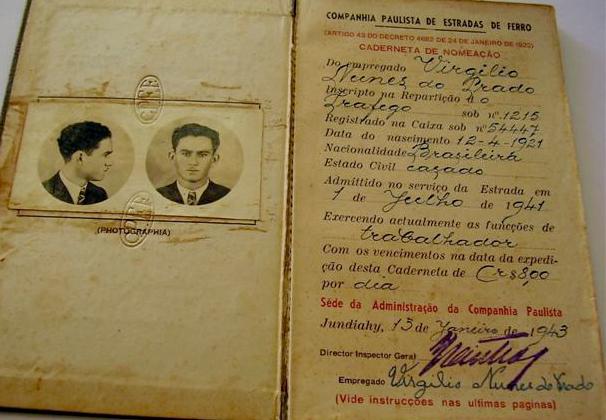 (PHOTOGRAPHIA)
COMPANHIA PAULISTA DE ESTRADAS DE FERRO
(ARTIGO 43 DO DECRETO 4682 DE 24 DE JANEIRO DE 1923)
CADERNETA DE NOMEAÇÃO
Do empregado Virgilio
Nunes do Prado
Inscripto na Repartição d o
Trafego sob nº. 1215
Registrado na Caixa sob nº 54447
Data do nascimento 12-4-1921
Nacionalidade Brasileira
Estado Civil cazado
Admittido no serviço da Estrada em
1 de Julho de 1941
Exercendo actualmente as funcções de
trabalhador
Com os vencimentos na data da expedi-
ção desta Caderneta de Cr$ 8,00
por dia
Séde da Administração da Companhia Paulista
Jundiahy, 15 de Janeiro de 1943
Director Inspector Geral
Empregado Virgilio Nunes do Prado
(Vide instrucções nas ultimas paginas)